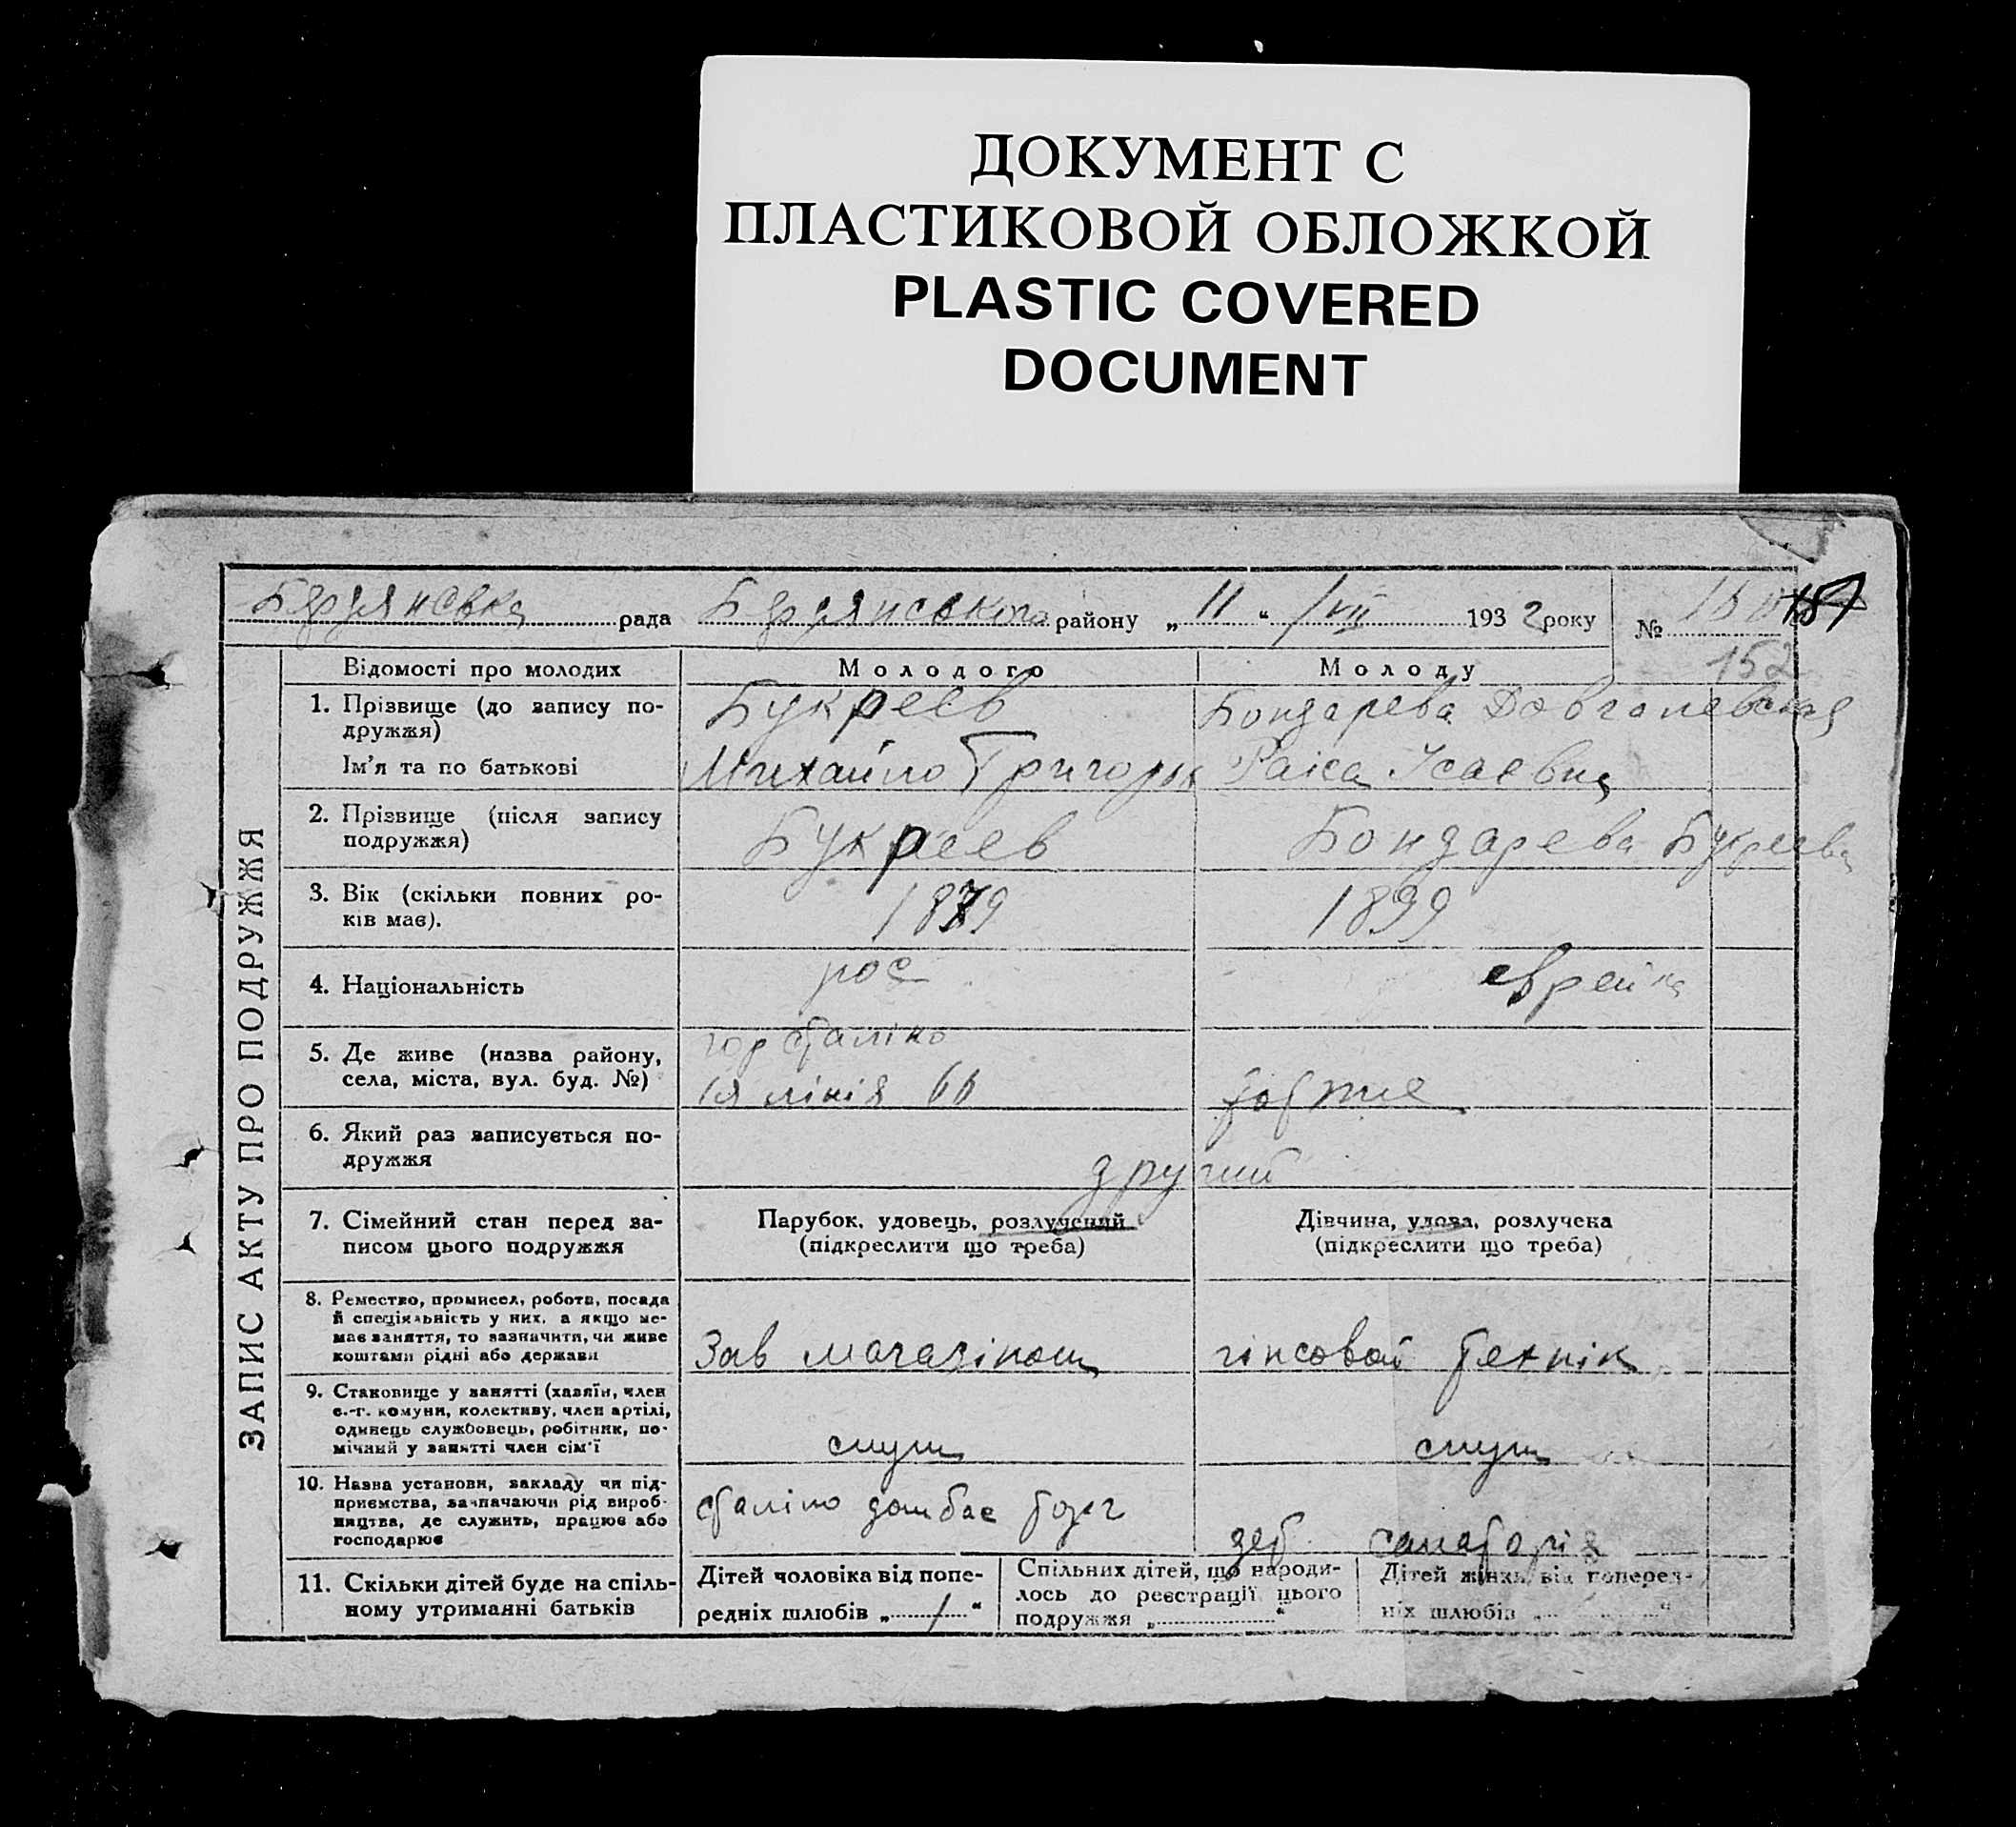 ДОКУМЕНТ С
ПЛАСТИКОВОЙ ОБЛОЖКОЙ
PLASTIC COVERED
DOCUMENT
Бердянська рада Бердянського району „ 11 “ /VII 1932 року №
152
ЗАПИС АКТУ ПРО ПОДРУЖЖЯ
Відомості про молодих Молодого Молоду
1. Прізвище (до запису по-
дружжя) Букреев Бондарева Довгалевская
Ім'я та по батькові Михайло Григорьев Раіса Ісаєвна
2. Прізвище (після запису
подружжя) Букреев Бондарева Букреева
3. Вік (скільки повних ро-
ків має). 1879 1899
4. Національність рос еврейка
5. Де живе (назва району,
села, міста, вул. буд. №) гор Сталіно
1я лінія 66
6. Який раз записується по-
дружжя другий
7. Сімейний стан перед за-
писом цього подружжя
Парубок, удовець, розлучений
(підкреслити що треба)
Дівчина, удова, розлучена
(підкреслити що треба)
8. Ремество, промисел, робота, посада
й спеціяльність у них, а якщо не-
має заняття, то зазначити, чи живе
коштами рідні або держави
Зав магазіном гіпсовой технік
9. Становище у занятті (хазяїн, член
с.-г. комуни, колективу, член артілі,
одинець службовець, робітник, по-
мічний у занятті член сім'ї
служ служ
10. Назва установи, закладу чи під-
приємства, зазначаючи рід вироб-
ництва, де служить, працює або
господарює
Сталіно донбас торг
санаторія
11. Скільки дітей буде на спіль-
ному утриманні батьків
Дітей чоловіка від попе-
редніх шлюбів „ / “
Спільних дітей, що народи-
лось до реєстрації цього
подружжя „ “
Дітей жінки від поперед-
ніх шлюбів „ “